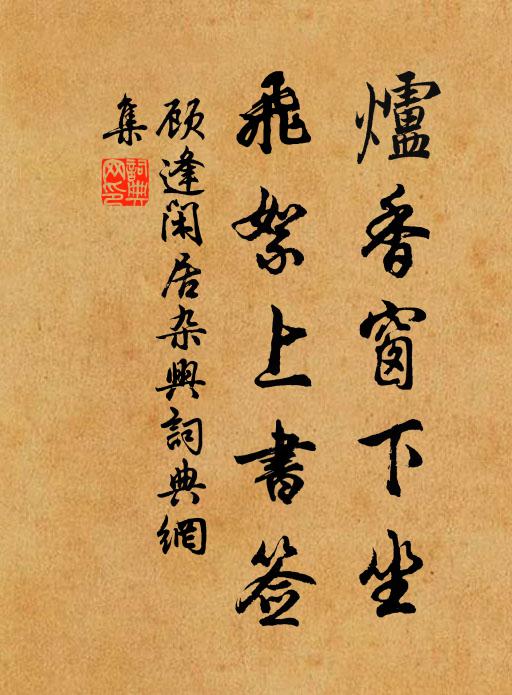 爐香窗下坐
飛絮上書簽
顧逢閑居杂興詞典網
集
詞典
网印